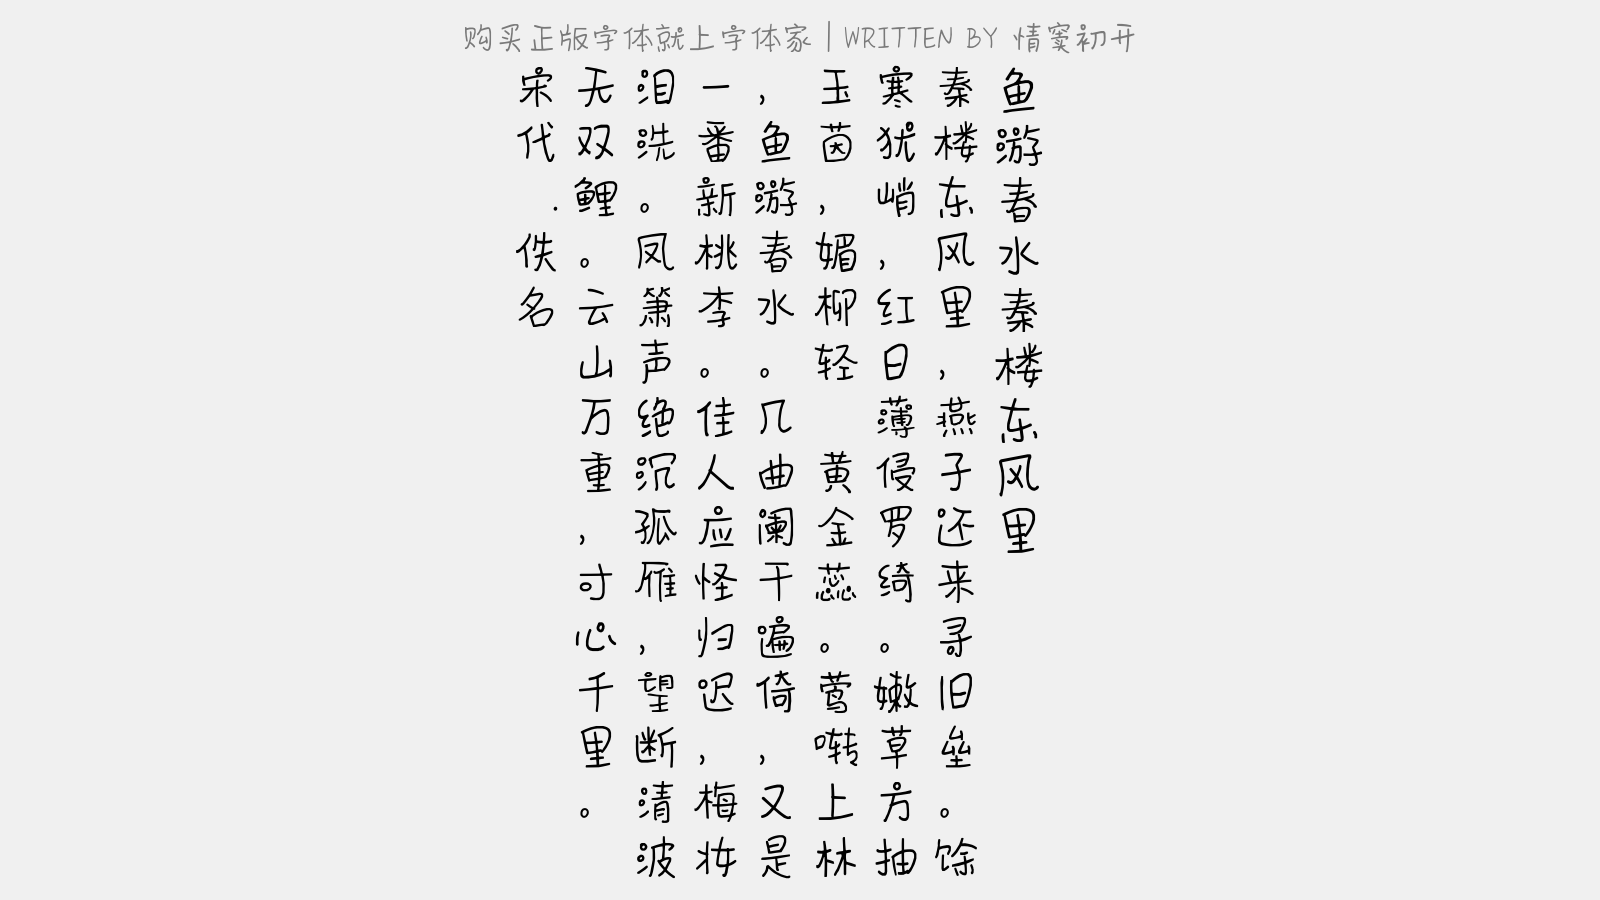 购买正版字体就上字体家 | WRITTEN BY 情窦初开
鱼游春水秦楼东风里
秦楼东风里，燕子还来寻旧垒。馀
寒犹峭，红日薄侵罗绮。嫩草方抽
玉茵，媚柳轻　黄金蕊。莺啭上林
，鱼游春水。几曲阑干遍倚，又是
一番新桃李。佳人应怪归迟，梅妆
泪洗。凤箫声绝沉孤雁，望断清波
无双鲤。云山万重，寸心千里。
宋代.佚名